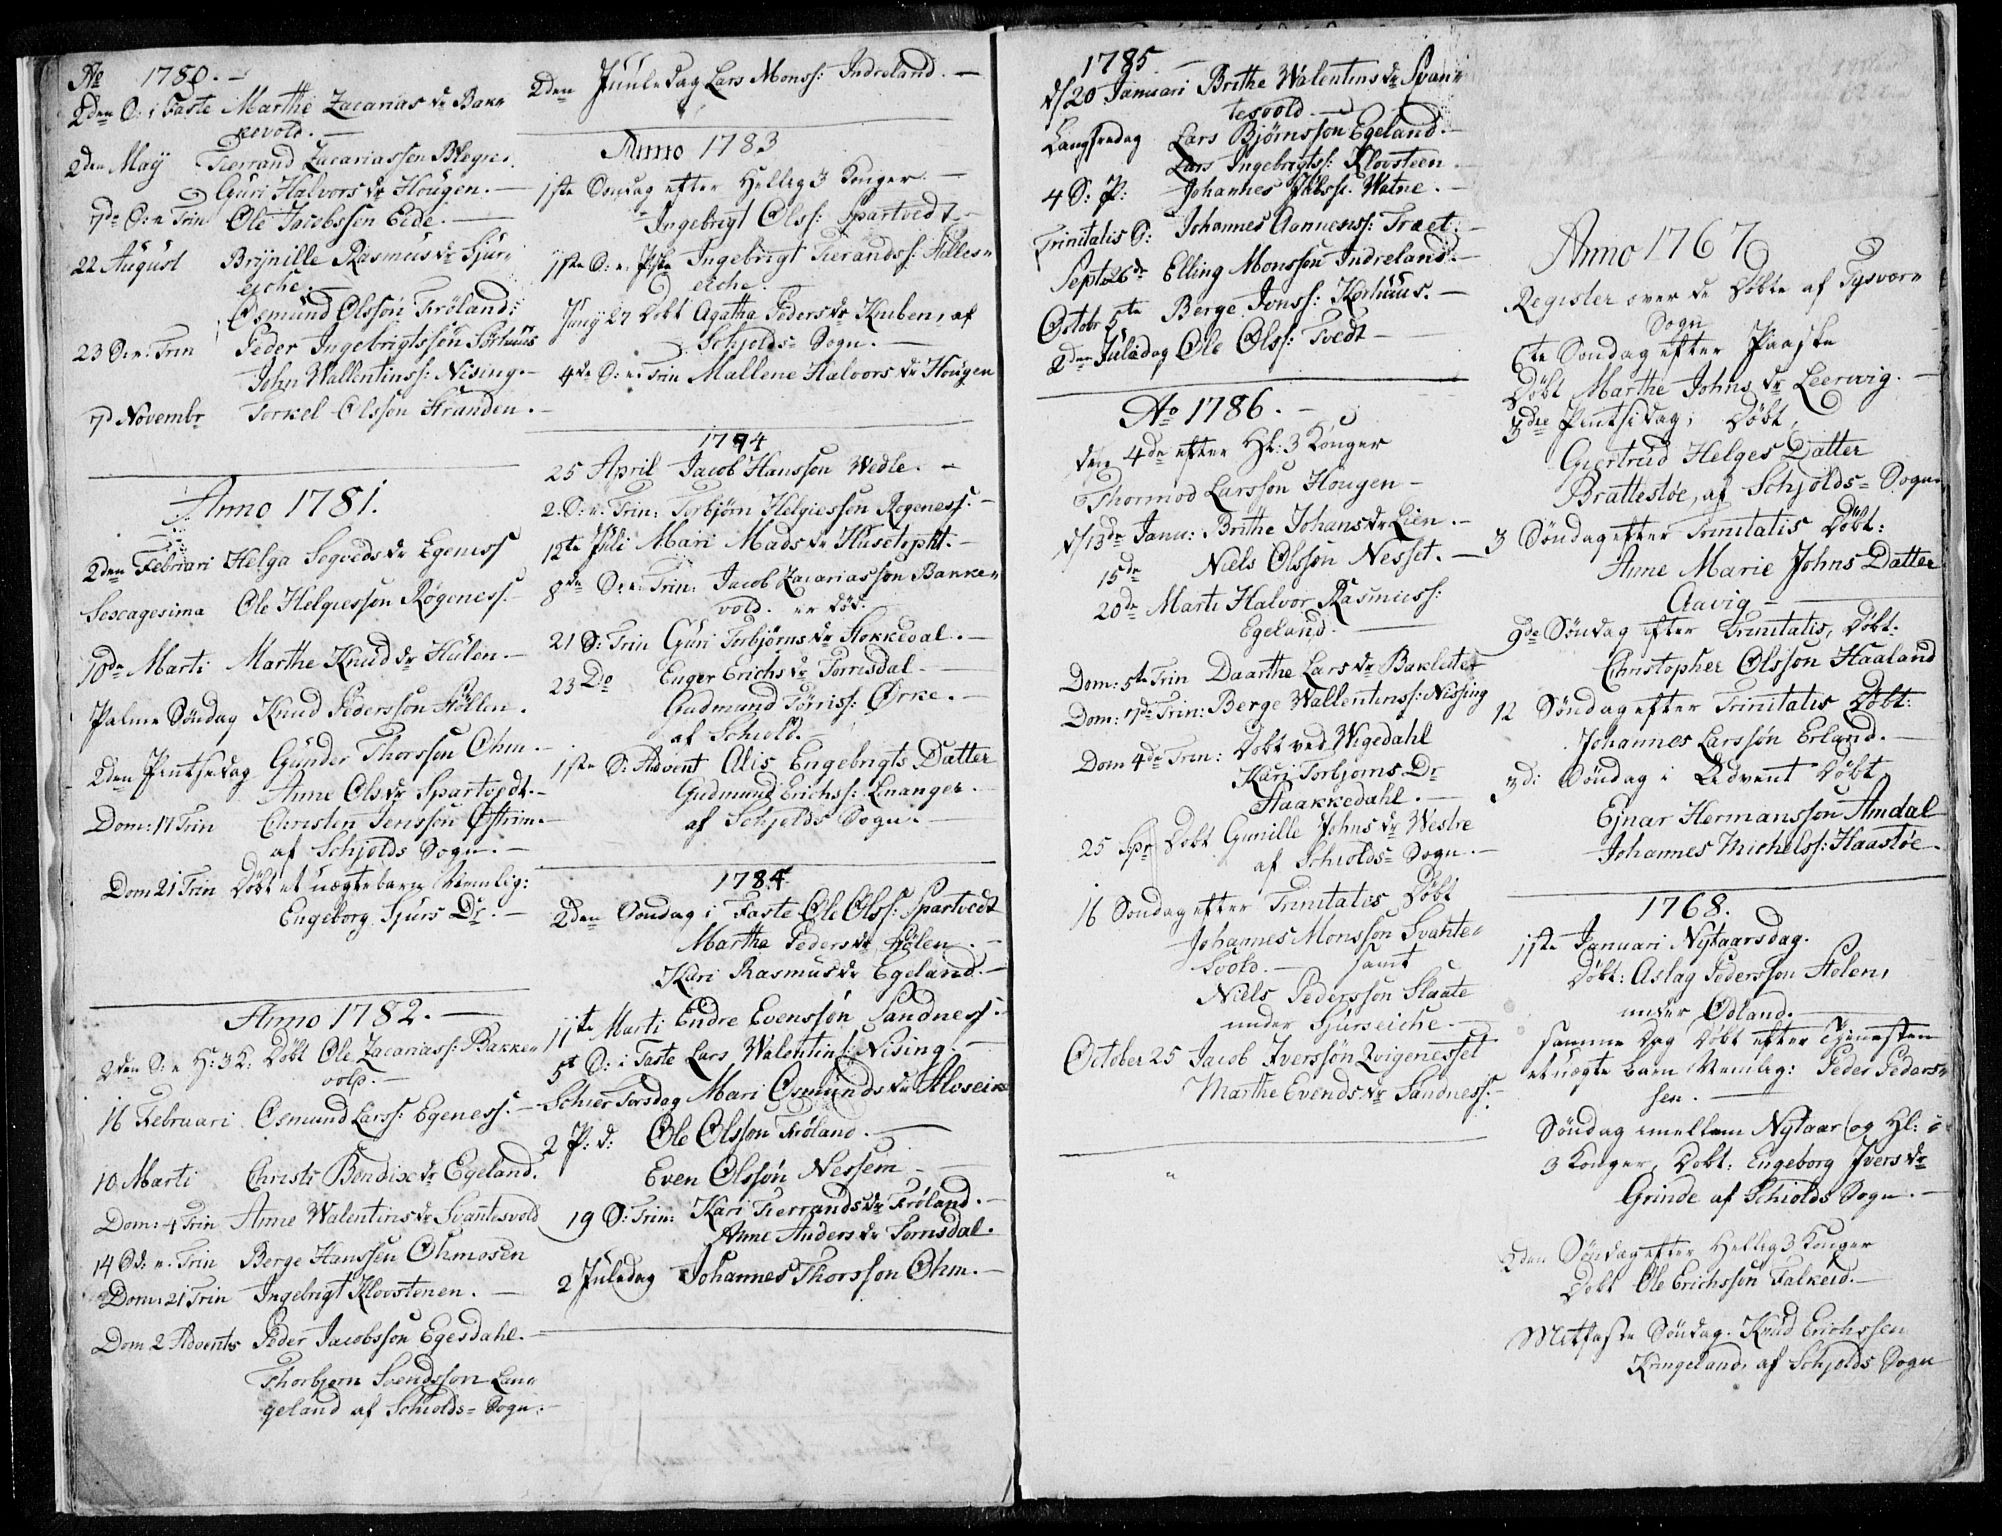 No 1780. -
2den S: i Faste Marthe Zacarias dr Bak=
kevold. -
2den May Tierrand Zacariassøn Blegne.
Guri Halvors dr Hougen. -
7de S: e. Trin Ole Jacobssøn Eede. -
22 August Brynille Rasmus dr Sjur=
eiche. -
Osmund Olssøn Frøland:
23 S: e: Trin Peder Ingebrigtssøn Sørhuus
John Wallentinss: Nising. -
7d Novembr Torkel Olsson Stranden. -
Anno 1781.
2den Februari Helga Segveds dr Egeness
Sexagesima Ole Helgiessøn Røgeness. -
10de Marti Marthe Knud dr Hülen. -
Palme Søndag Knud Pederssøn Høllen.
2den Pintsedag Gunder Thorssøn Ohm. -
Anne Ols dr Spartvedt. -
Dom: 17 Trin Christen Jenssøn Østrim. -
af Schjolds Sogn. -
Dom 21 Trin Døbt et uægte barn Nemlig:
Engeborg Sjurs Dr. -
Anno 1782. -
2den S: e H: 3 K: Døbt Ole Zacariass: Bakke=
vold. -
16 Februari Osmund Larss: Egeness. -
10 Marti Christi Bendix dr Egeland.
Dom: 4 Trin Anne Walentins dr Svantesvold
14 S: e. Trin Berge Hanssen Ohmosen
Dom: 21 Trin Ingebrigt Klovstenen. -
Dom 2 Advents Peder Jacobsson Egesdahl. -
Thorbjørn Svendsson Lan=
geland af Schiolds= Sogn. -
2den Juuledag Lars Monss: Indreland. -
Anno 1783
1ste Søndag efter Hellig 3 Konger. -
Ingebrigt Olss: Spartvedt -
11ste S: e. Pste Ingebrigt Tierandss: Hilles=
eiche.
Junij 27 Døbt Agatha Peders dr Knuben, af
Schjolds= Sogn. -
4de S: e. Trin Mallene Halvors dr Hougen
1794
25 April Jacob Hanssøn Wedle. -
2. S: e: Trin: Torbjørn Helgiessøn Rogeness. -
12te Juli Mari Mads dr Husetoptt. -
8de S: e: Trin: Jacob Zacariassøn Bakke=
vold. er død.
21 S: Trin Guri Torbjørns dr Stokkedal. -
23 Do Enger Erichs dr Torrisdal. -
Gudmund Tørriss: Ørke. -
af Schiold. -
1ste S: Advent Alis Engebrigts Datter
Gudmund Erichss: Enanger. -
af Schjelds Sogn. -
1784.
2den Søndag i Faste Ole Olss: Spartvedt
Marthe Peders dr Hølen. -
Kari Rasmus dr Egeland. -
11te Marti Endre Evenssøn Sandness. -
5t S: i Faste Lars Walentins: Nising. -
Schier Torsdag Mari Osmunds dr Klosein
2 P: d: Ole Olsson Frøland. -
Even Olssøn Nessem -
19 S: Trin: Kari Tierrands dr Frøland. -
Anne Anders dr Torrisdal.
2 Juledag Johannes Thorssøn Ohm. -
1785. -
d/20 Januari Brithe Walentins dr Svan=
tesvold -
Langfredag Lars Bjørnssøn Egeland. -
Lars Ingebrigts: Klovsteen. -
4 S: P: Johannes Jibss: Watne. -
Trinitatis S: Johannes Aannenss: Træet. -
Septo 26de Elling Monssøn Indreland. -
Octobr 5te Berge Jonss: Korhuus. -
2den Juledag Ole Olss: Tvedt -
Ao 1786. -
den 4de efter Hl: 3 Konger
Thormod Larssøn Hougen -
d/13de Janu: Brithe Johans dr Lien. -
15de Niels Olssøn Nesset. -
20de Marti Halvor Rasmuss:
Egeland. -
Dom: 5te Trin Daarthe Lars dr Baklettet
Dom: 7de Trin: Berge Wallentinss: Nissing
Dom 4de Trin: Døbt ved Wigedahl
Kari Torbjørns Dr
Staakkedahl. -
25 Spr Døbt Gunille Johns dr Westre
af Schiolds= Sogn. -
16 Søndag efter Trinitatis Døbt
Johannes Monssøn Svante=
svold. - samt
Niels Pedersson Slaate
under Sjurseiche -
October 25 Jacob Iverssøn Qvigenesset
Marthe Evends dr Sandness. -
Anno 1767
Register over de Døbte af Tysvær=
Sogn
6te Søndag efter Paaske
Døbt Marthe Johns dr Leervig. -
3die Pintsedag, Døbt,
Giertrud Helges Datter
Brattestøe, af Schjolds= Sogn
3 Søndag efter Trinitatis Døbt:
Anne Marie Johns Datter
Aavig -
9de Søndag efter Trinitatis, Døbt:
Christopher Olssøn Haaland
12 Søndag efter Trinitatis Døbt:
Johannes Larssøn Erland. -
3d: Søndag i Advent Døbt
Ejnar Hermanssøn Amdal
Johannes Michelss: Haastøe. -
1768.
1ste Januari Nytaarsdag.
Døbt: Aslag Pederssøn Stolen,
under Ødland. -
samme dag Døbt efter Tjenesten
et uægte barn Nemlig: Peder Peders=
sen. -
Søndag imellem Nytaar og Hl:
3 Konger, Døbt: Engeborg Ivers dr
Grinde af Schiolds Sogn. -
2den Søndag efter Hellig 3 Konger
Døbt Ole Erichssøn Falkeid. -
Mitfaste Søndag. Knud Erichssen
Kringeland, af Schjolds Sogn